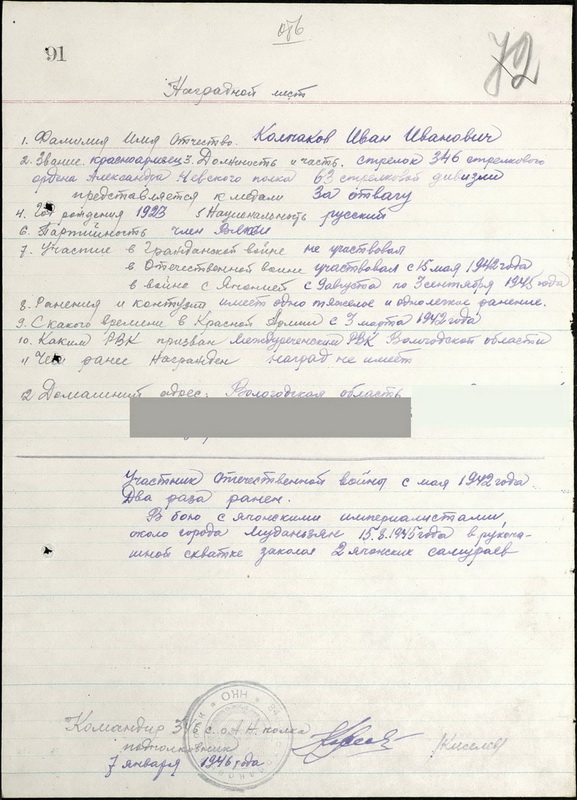 91
72
Наградной лист
1. Фамилия Имя Отчество. Колпаков Иван Иванович
2. Звание. красноармеец 3. Должность и часть. стрелок 346 стрелкового
ордена Александра Невского полка 63 стрелковой дивизии
представляется к медали За отвагу
4. Год рождения 1923 5. Национальность русский
6. Партийность член ВЛКСМ
7. Участие в Гражданской войне не участвовал
в Отечественной войне участвовал с 15 мая 1942 года
в войне с Японией с 9 августа по 3 сентября 1945 года
8. Ранения и контузии имеет одно тяжелое и одно легкое ранение.
9. С какого времени в Красной Армии с 3 марта 1942 года
10. Каким РВК призван Междуреченский РВК Вологодской области
11 Чем ранее Награжден наград не имеет
12 Домашний адрес: Вологодская область
Участник Отечественной войны с мая 1942 года.
Два раза ранен.
В бою с японскими империалистами,
около города Муданьзян 15.8.1945 года в рукопа-
шной схватке заколол 2 японских самураев
Командир 346 с. о А.Н. полка
подполковник (Киселев)
7 января 1946 года